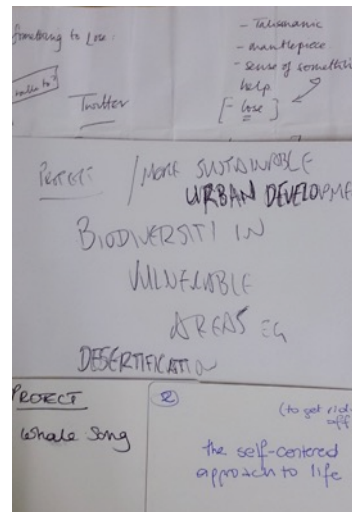 Something to Lose:
Twitter
- Talismanic
- mantlepiece
- sense of somethi
help
[- lose]
PROTECT / MORE SUSTAINABLE
URBAN DEVELOPME
BIODIVERSITY IN
VULNERABLE
AREAS EG
DESERTIFICATION
PROTECT
Whale Song
2
(to get rid
off
the self-centered
approach to life